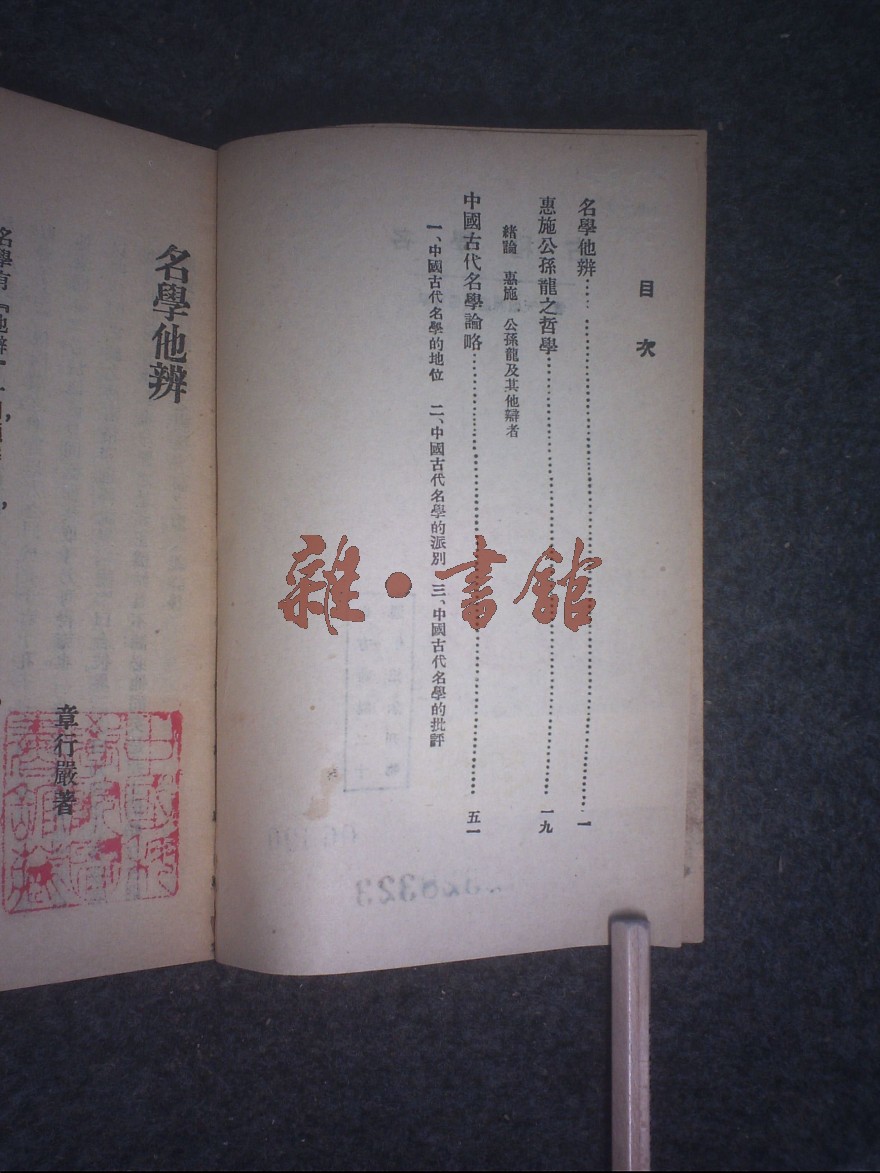 目次
名學他辨…… 一
惠施公孫龍之哲學…… 一九
緒論 惠施 公孫龍及其他辯者
中國古代名學論略…… 五一
一、中國古代名學的地位 二、中國古代名學的派別 三、中國古代名學的批評
名學他辨
章行嚴著
雜·書館